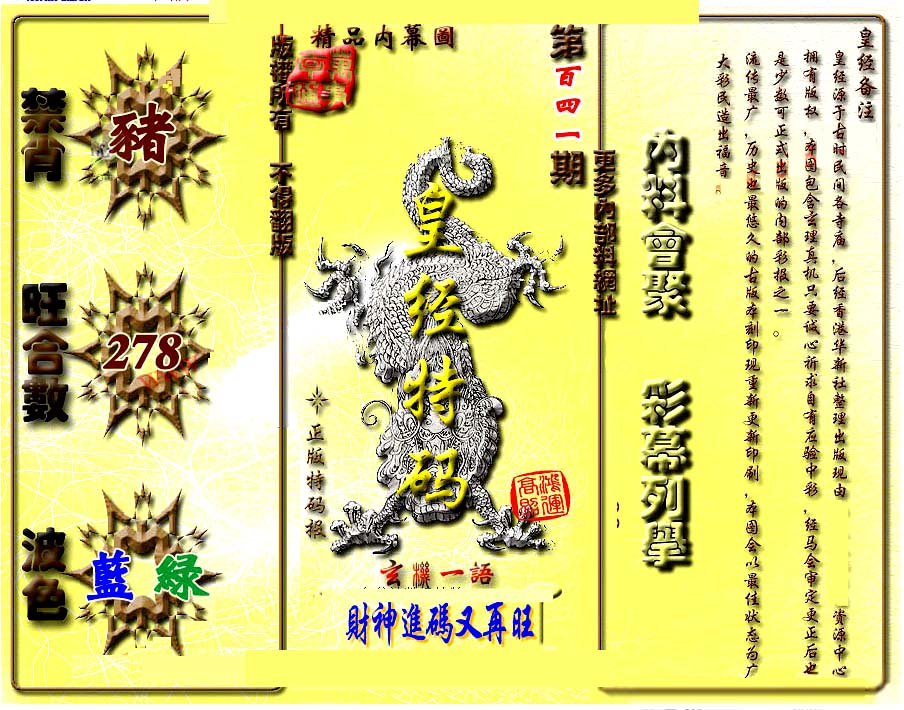 皇经备注
皇经源于古时民间各寺庙，后经香港华新社整理出版现由资源中心
拥有版权，本图包含玄理真机只要诚心祈求自有应验中彩，经马会审定更正后也
是少数可正式出版的内部彩报之一。
流传最广，历史也最悠久的古版本刻印现重新更新印刷，本图会以最佳状态为广
大彩民造出福音
內料會聚
彩幕列舉
更多內部料網址
第百四一期
精品内幕圖
版權所有 不得翻版
皇经特码
正版特码报
鸿運高照
玄機一語
財神進碼又再旺
禁肖
豬
旺合數
278
波色
藍 綠